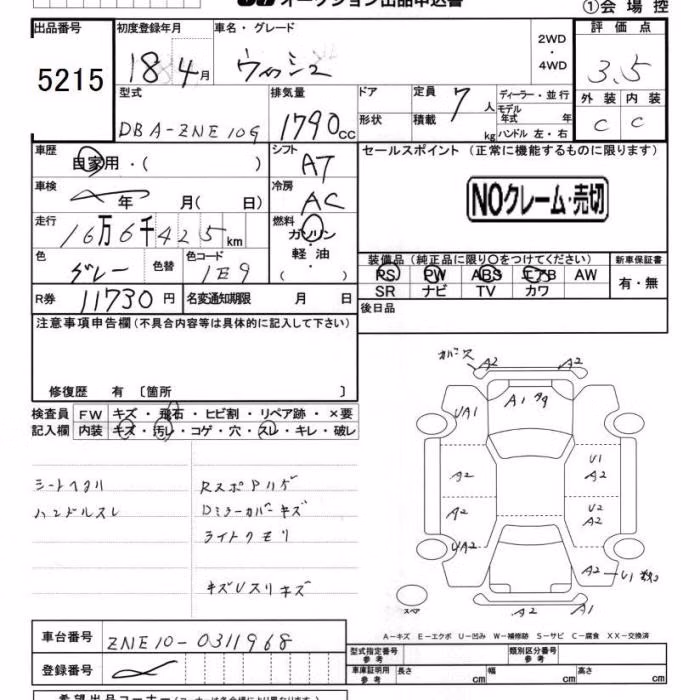 オークション出品申込書
①会場控
出品番号 初度登録年月 車名・グレード 2WD ・ 4WD 評価点
5215 18 4月 ウィッシュ 3.5
型式 排気量 ドア 定員 7 人 ディーラー・並行
モデル年式 年
外装 内装
DBA-ZNE10G 1790cc 形状 積載 kg ハンドル 左・右 C C
車歴 自家用・( ) シフト AT
セールスポイント (正常に機能するものに限ります)
車検 年 月( 日) 冷房 AC
NOクレーム・売切
走行 16万6千425km 燃料 ガソリン
軽油
( )
色 グレー 色替 色コード 1E9
装備品 (純正品に限り○をつけてください) 新車保証書
PS PW ABS エアB AW 有・無
SR ナビ TV カワ
R券 11730円 名変通知期限 月 日
後日品
注意事項申告欄(不具合内容等は具体的に記入して下さい)
修復歴 有 [箇所 ]
検査員 FW キズ・飛石・ヒビ割・リペア跡・×要
記入欄 内装 キズ・汚レ・コゲ・穴・スレ・キレ・破レ
シートヘタリ Rスポアリゲ
ハンドルスレ Dミラーカバーキズ
ライトクモリ
キズUスリキズ
カバー欠 A2 A2
UA1 A1
A2 U1 A2
A2 U2 A2
UA2 A2 U1
スペア A2 A1
A-キズ E-エクボ U-凹み W-補修跡 S-サビ C-腐食 XX-交換済
車台番号 ZNE10-0311968
登録番号
型式指定番号 参考 類別区分番号 参考
車庫証明用 参考 長さ cm 幅 cm 高さ cm
希望出品コーナー